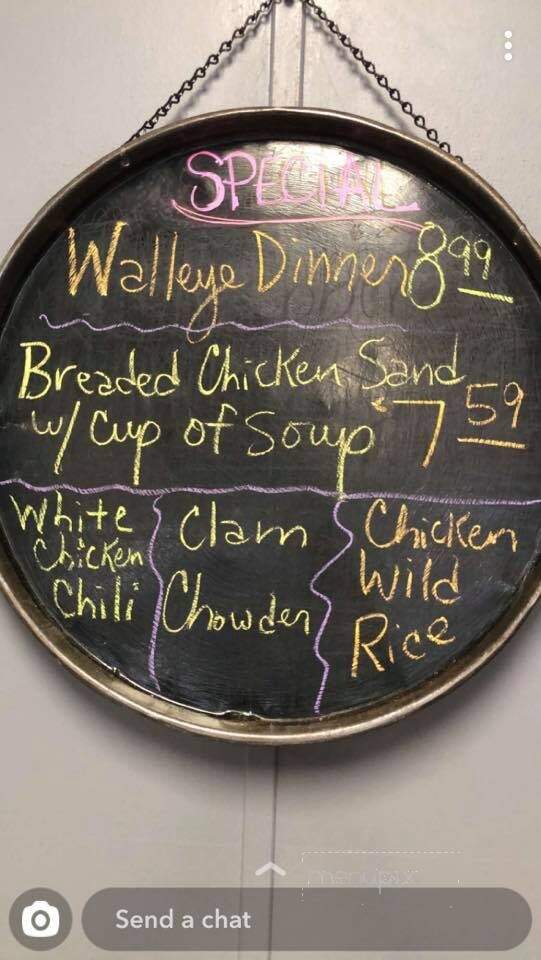 SPECIAL
Walleye Dinner 8.99
Breaded Chicken Sand
w/ Cup of Soup 7.59
White
Chicken
Chili
Clam
Chowder
Chicken
Wild
Rice
menupix
Send a chat